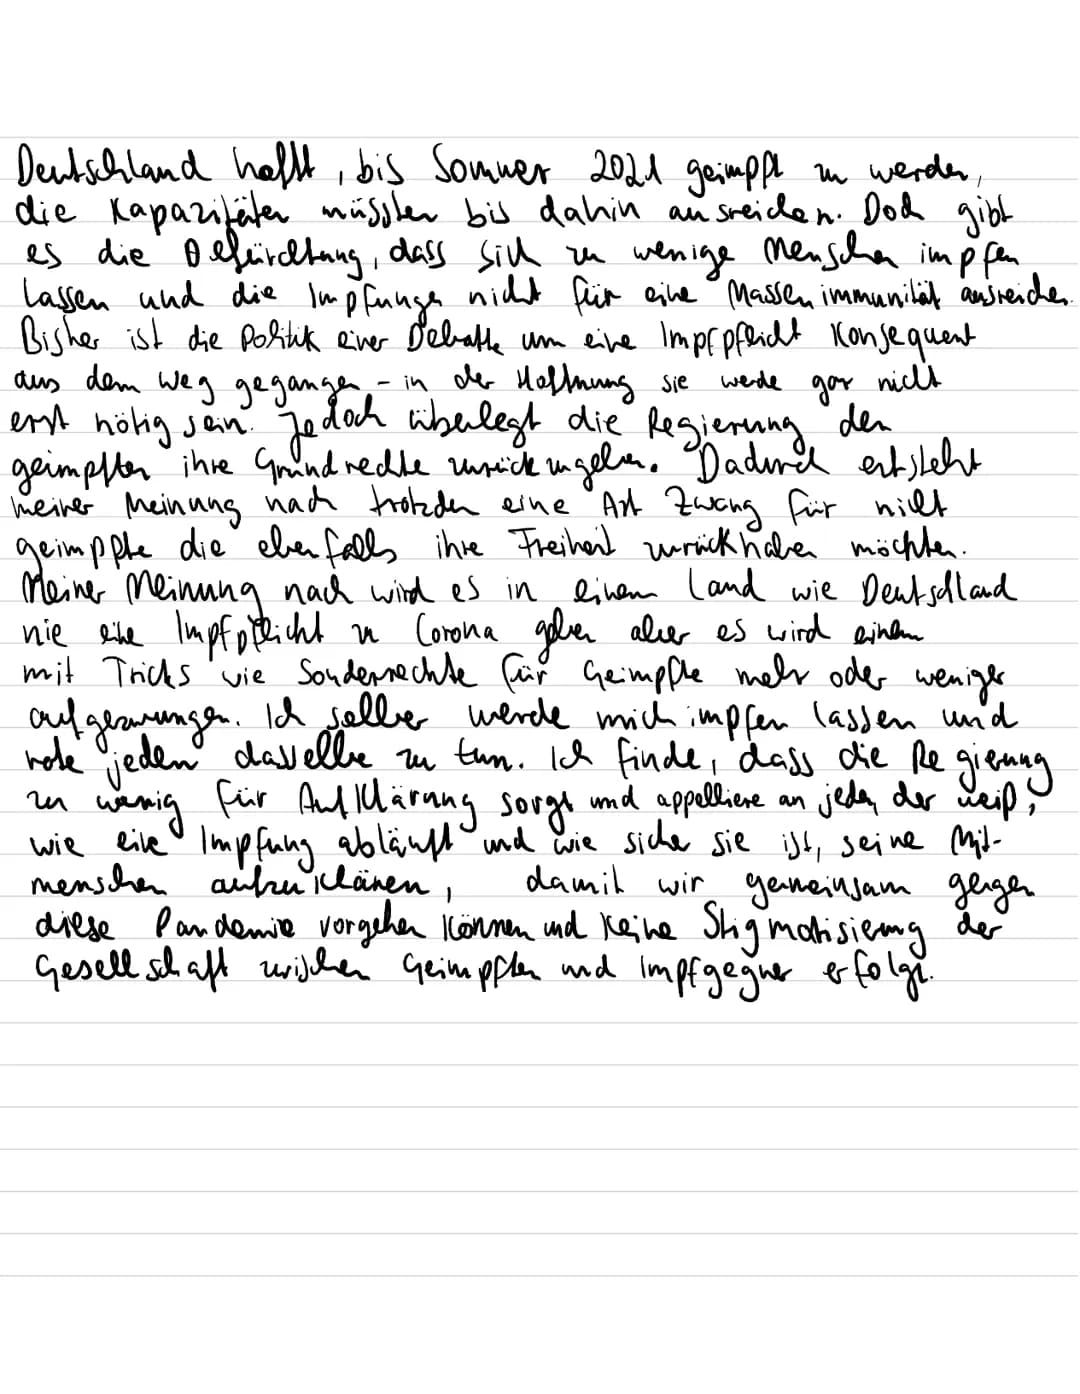 Deutschland hofft, bis Sommer 2021 geimpft zu werden,
die Kapazitäten müssten bis dahin ausreichen. Doch gibt
es die Befürchtung, dass sich zu wenige Menschen impfen
lassen und die Impfungen nicht für eine Massenimmunität ausreichen.
Bisher ist die Politik einer Debatte um eine Impfpflicht Konsequent
aus dem Weg gegangen - in der Hoffnung sie werde gar nicht
erst nötig sein. Jedoch überlegt die Regierung den
geimpften ihre Grundrechte zurückzugeben. Dadurch entsteht
meiner Meinung nach trotzden eine Art Zwang für nicht
geimpfte die ebenfalls ihre Freiheit zurückhaben möchten.
Meiner Meinung nach wird es in einem Land wie Deutschland
nie eine Impfpflicht zu Corona geben aber es wird einem
mit Tricks wie Sonderrechte für Geimpfte mehr oder weniger
aufgezwungen. Ich selber werde mich impfen lassen und
rate jeden dasselbe zu tun. Ich finde, dass die Regierung
zu wenig für Aufklärung sorgt und appelliere an jeden der weiß,
wie eine Impfung abläuft und wie sicher sie ist, seine Mit-
menschen aufzuklären, damit wir gemeinsam gegen
diese Pandemie vorgehen Können und Keine Stigmatisierung der
Gesellschaft zwischen Geimpften und Impfgegner erfolgt.